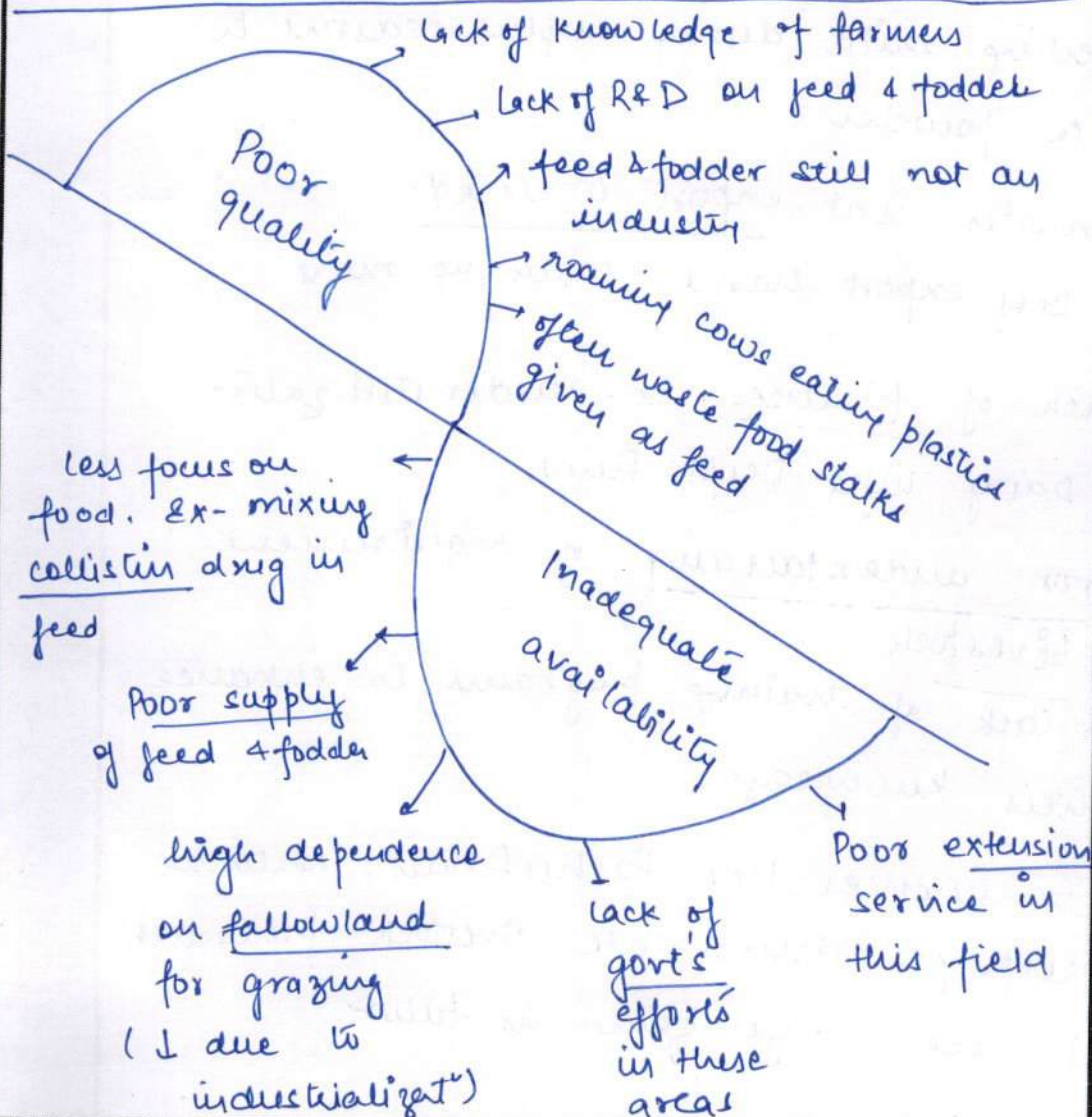 lack of knowledge of farmers
lack of R&D on feed & fodder
feed & fodder still not an
industry
roaming cows eating plastics
often waste food stalks
given as feed
Poor
quality
less focus on
food. Ex- mixing
collistin drug in
feed
Poor supply
of feed & fodder
high dependence
on fallowland
for grazing
(↓ due to
industrializatn)
lack of
govt's
efforts
in these
areas
Poor extension
service in
this field
Inadequate
availability